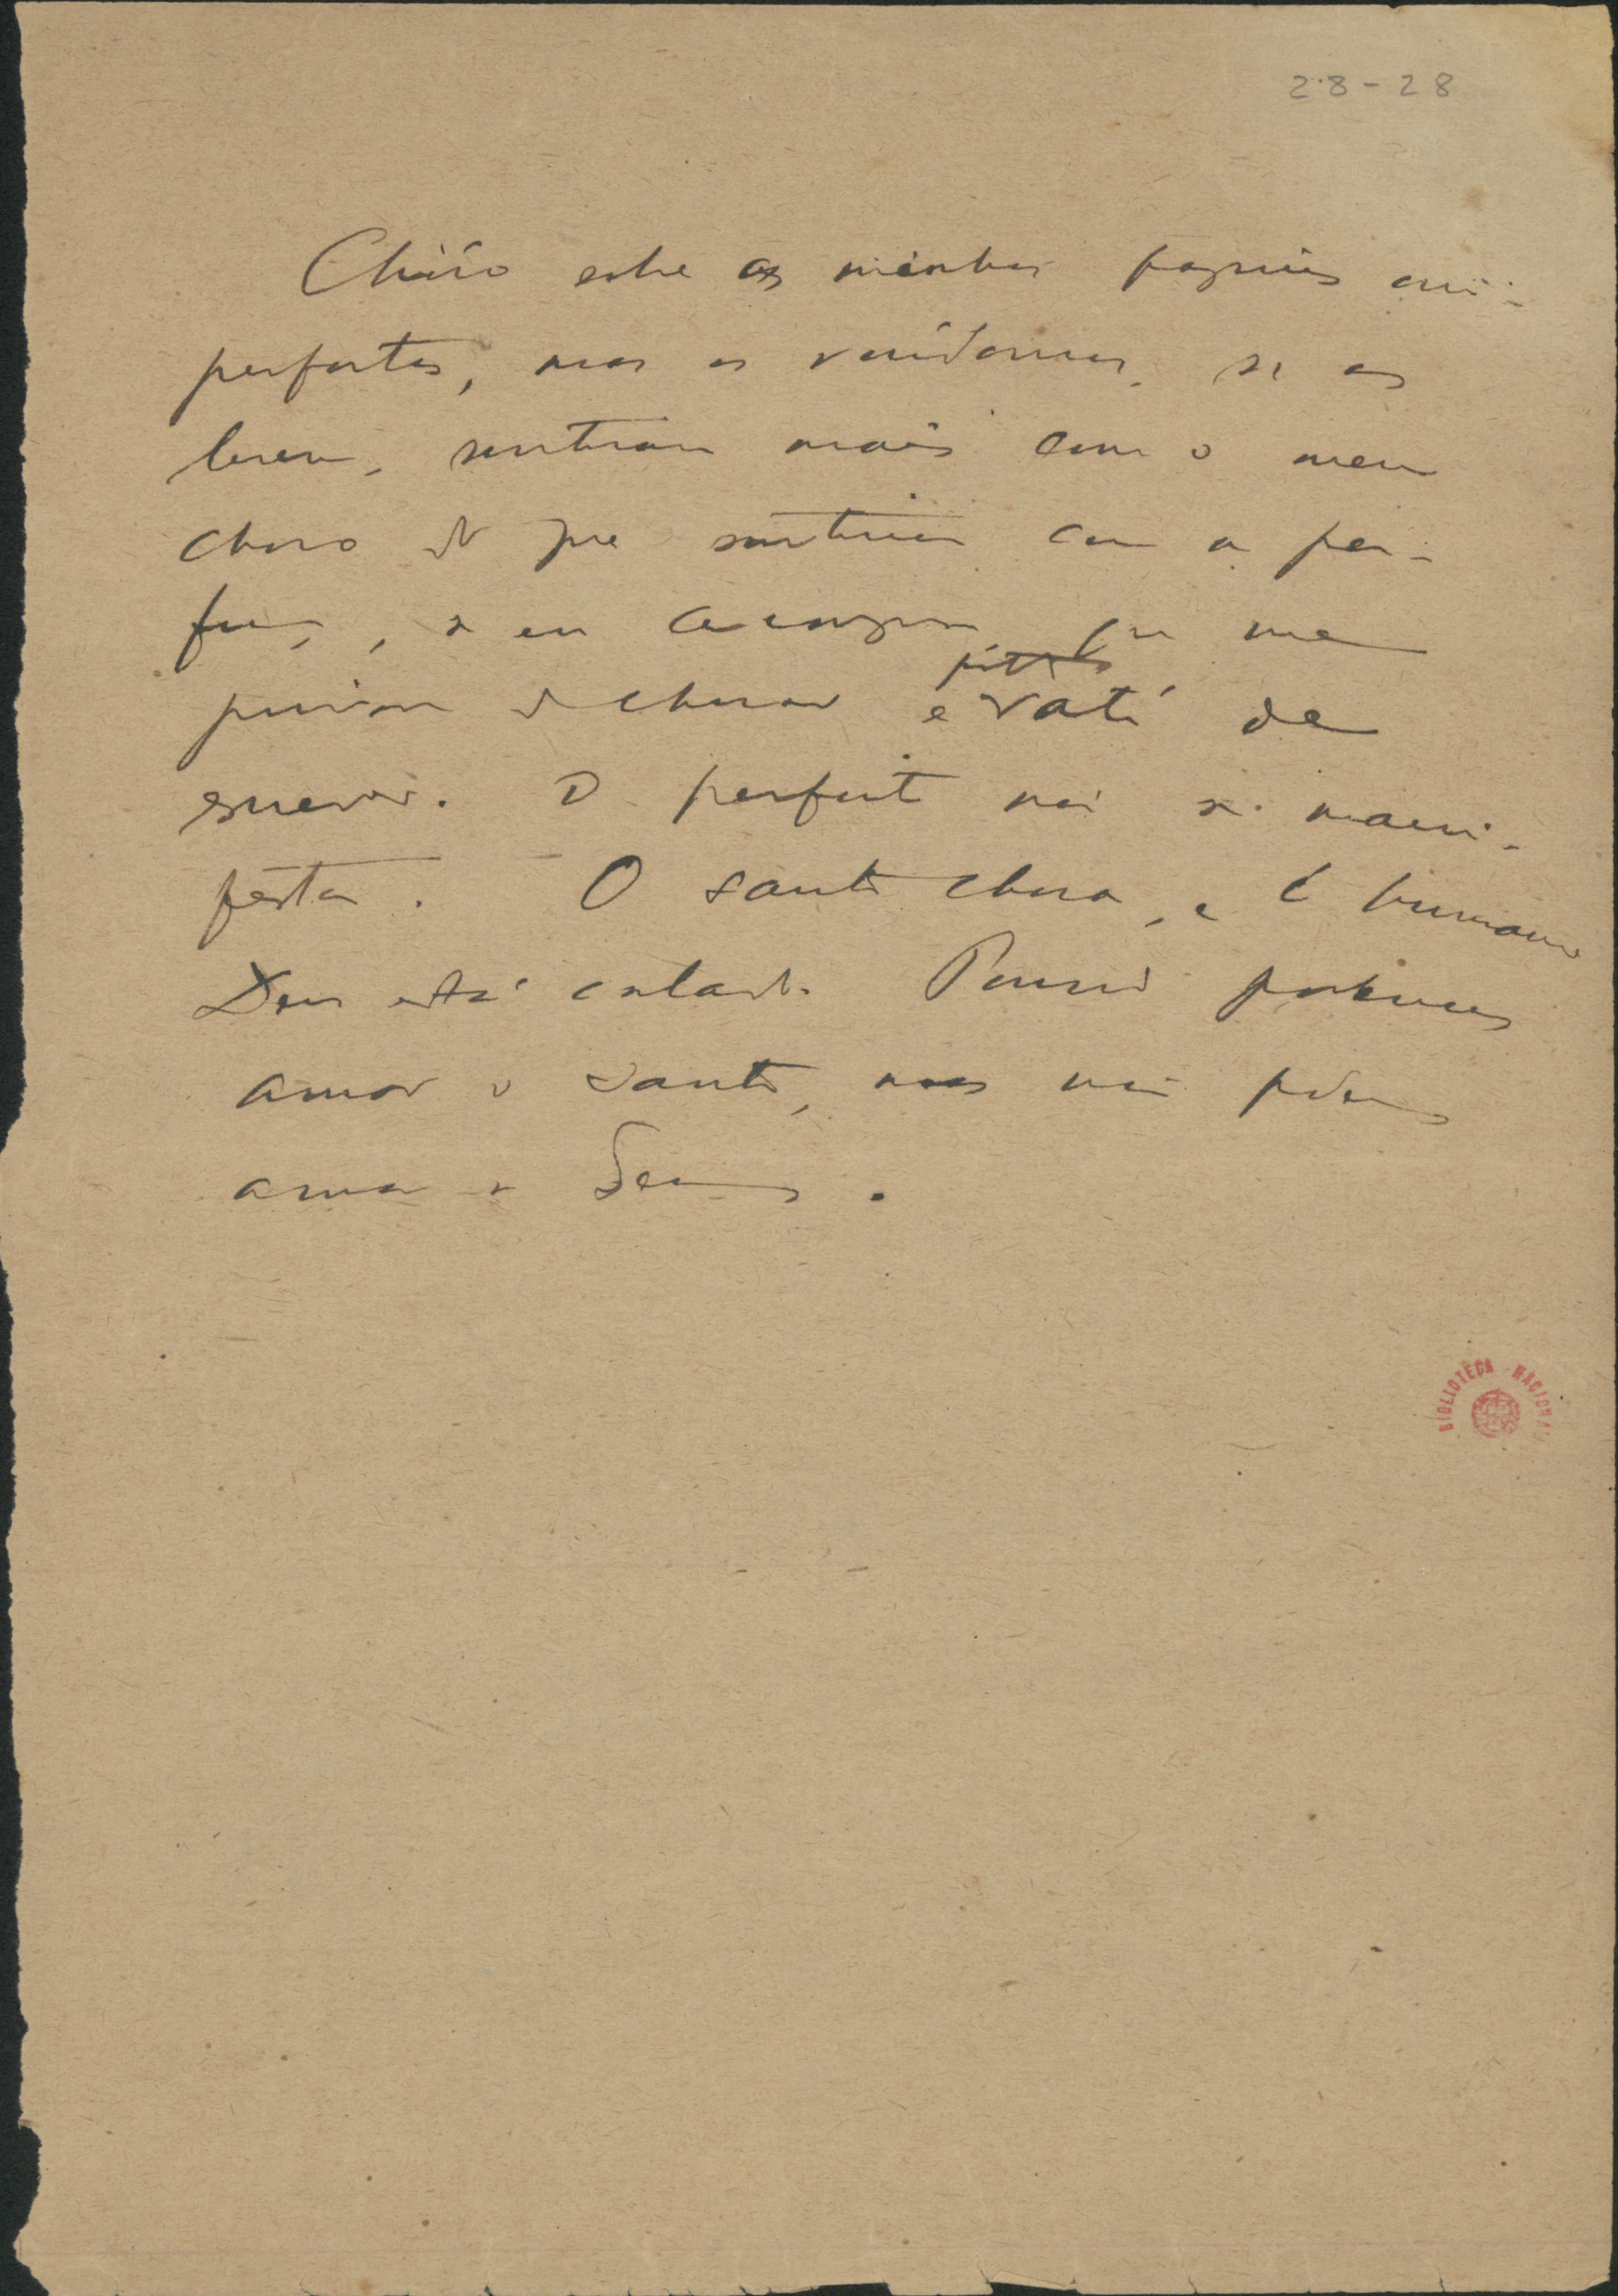 28-28
Chóro sobre as minhas paginas im-
perfeitas, mas os vindouros, se as
lerem, sentirão mais com o meu
choro do que sentiriam com a per-
feição, se eu a conseguisse, que me
privaria de chorar e até de
escrever. O perfeito não se mani-
festa. O santo chora, e é humano.
Deus está calado. Por isso podemos
amar o santo, mas não podemos
amar a Deus.
BIBLIOTECA NACIONAL